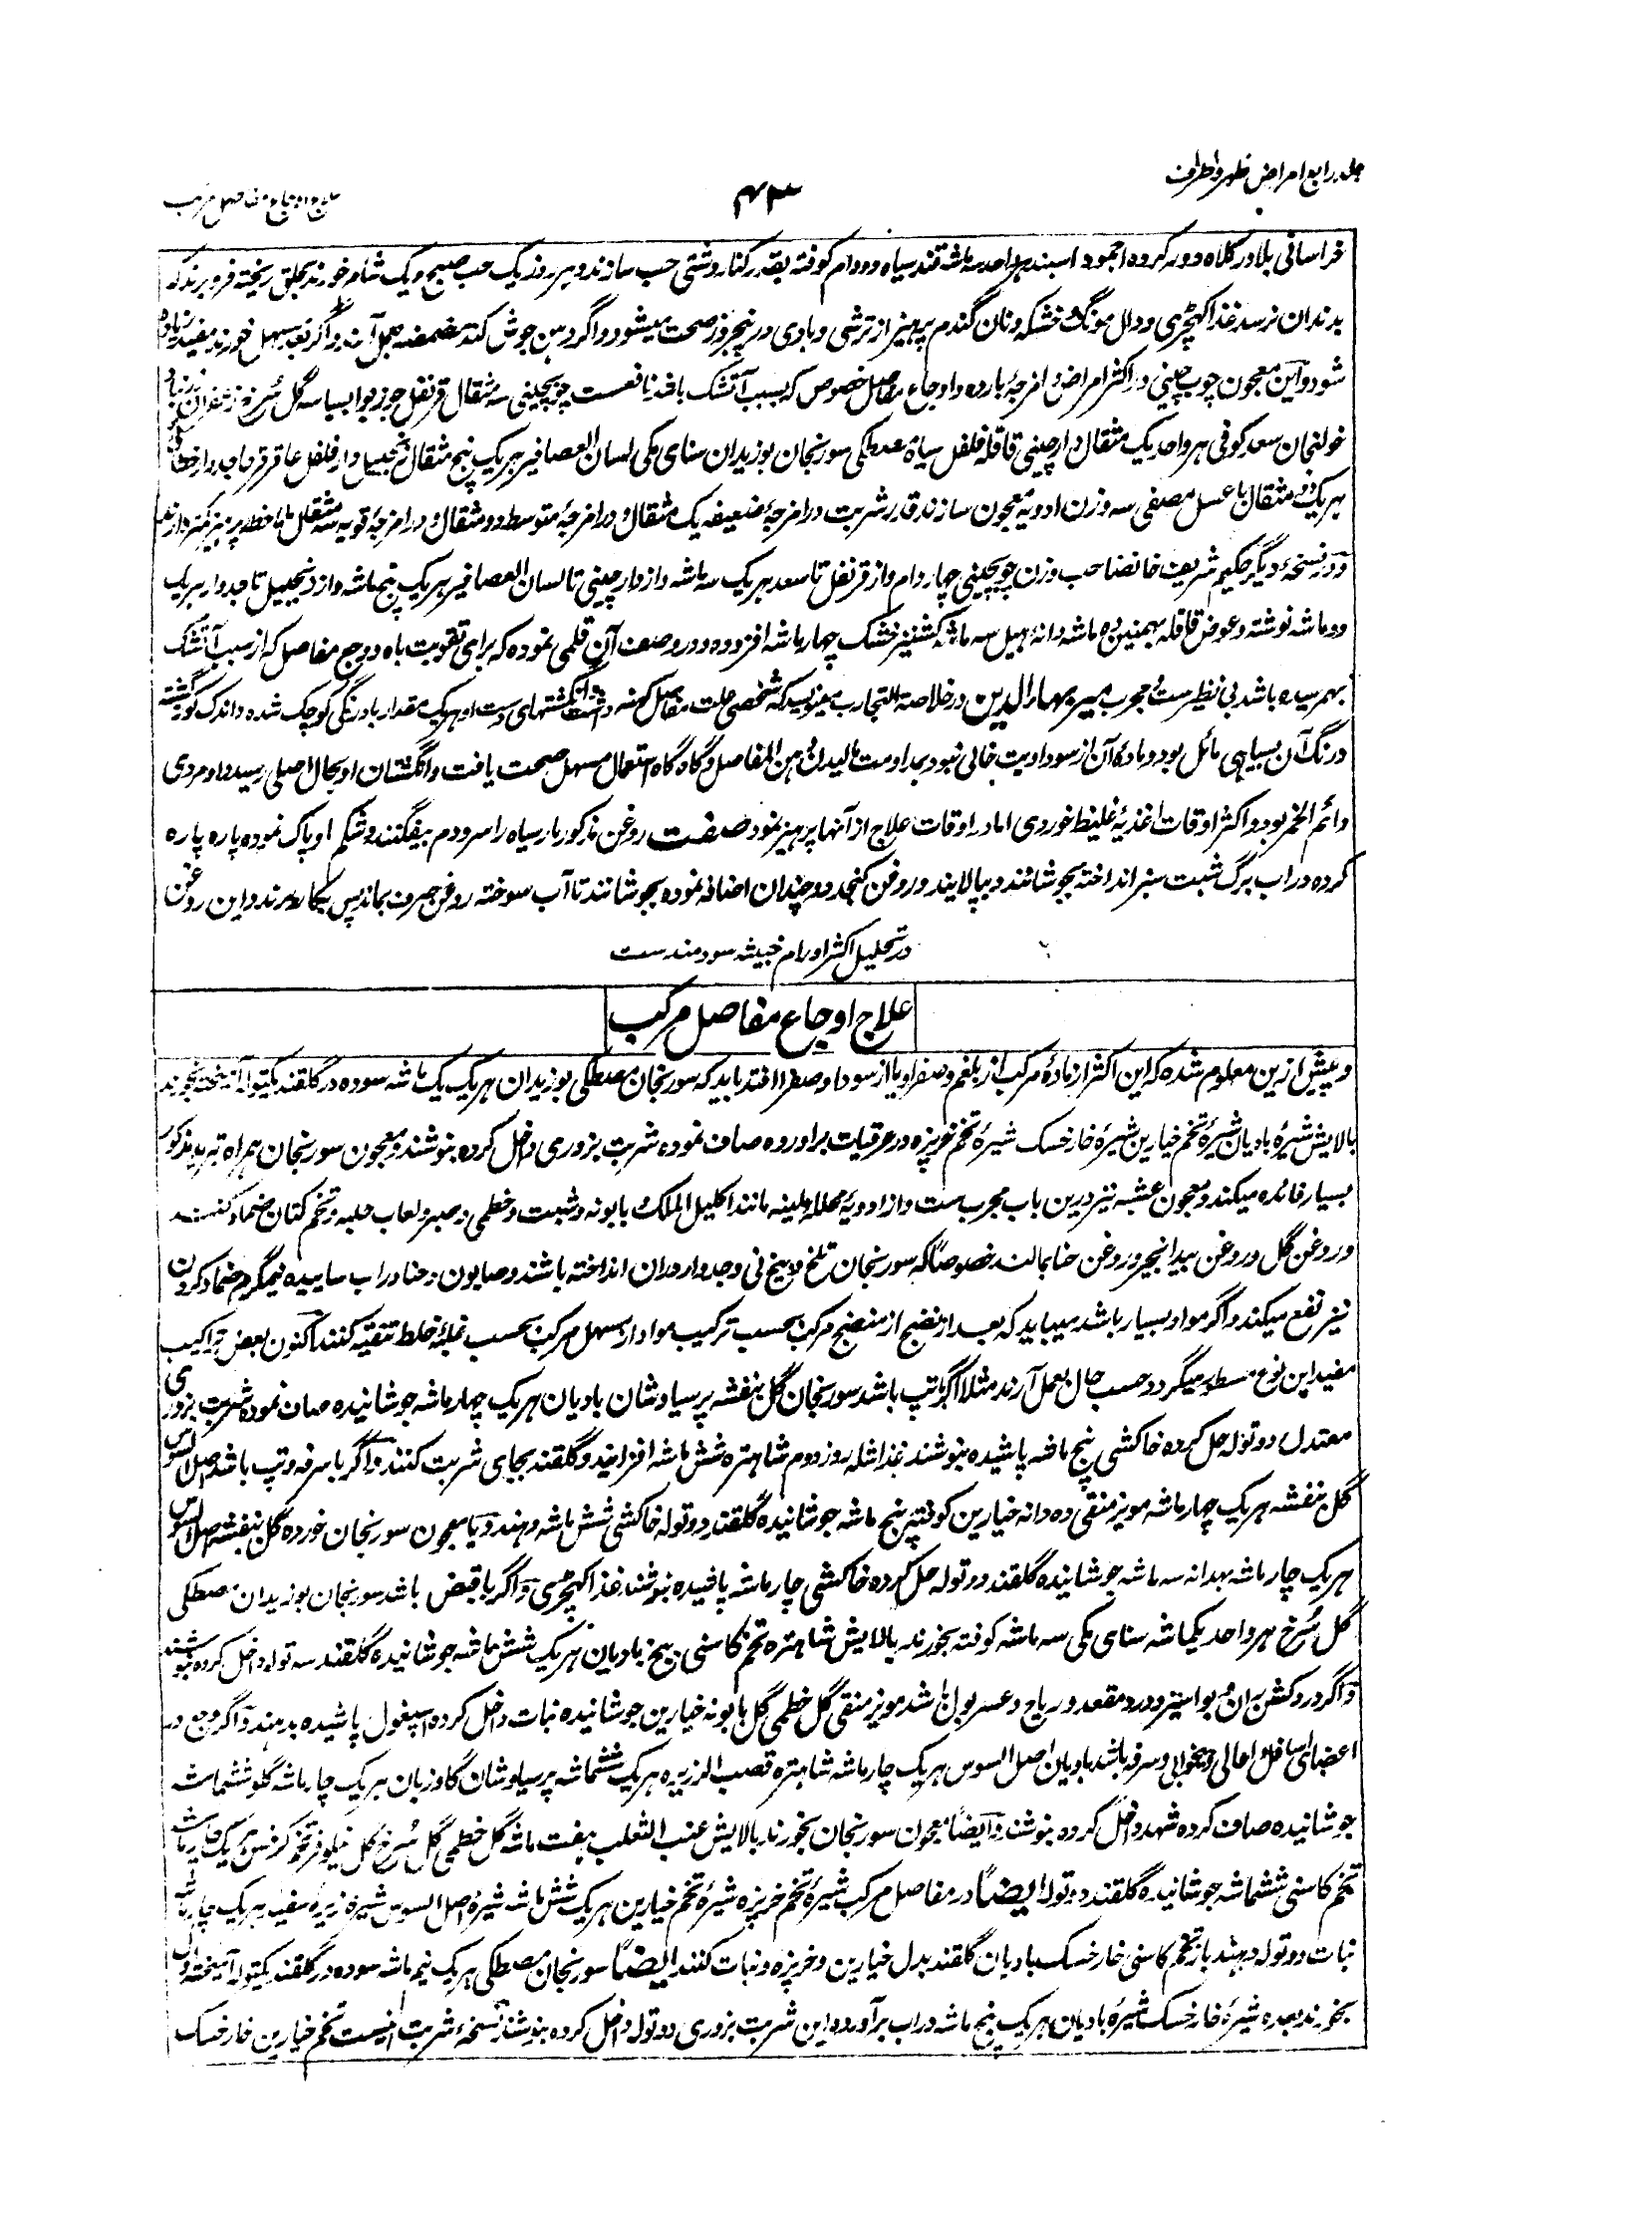 جلد رابع امراض ظهر و اطراف
۴۳
علاج اوجاع مفاصل مرکب
خراسانی بلادر کلاه دور کرده اجمود اسبند هر واحد سه ماشه قند سیاه دو دام کوفته بقدر کنار دشتی حب سازند و هر روز یک حب صبح و یک شام خورند بحلق ریخته فرو برند که
بدندان نرسد غذا کهچڑی و دال مونگ و خشکه و نان گندم پرهیز از ترشی و بادی در پنجروز صحت میشود و اگر دهن جوش کند مضمضه بعمل آرند و اگر بعد مسهل خورند مفید زیاده
شود و این معجون چوب چینی در اکثر امراض و امزجهٔ بارده و اوجاع مفاصل خصوص که بسبب آتشک باشد نافعست چوبچینی سه مثقال قرنفل جوزبوا بسباسه گل سرخ زعفران زرنباد
خولنجان سعد کوفی هر واحد یک مثقال دارچینی قاقله فلفل سیاه مصطگی سورنجان بوزیدان سنای مکی لسان العصافیر هر یک پنج مثقال زنجبیل دارفلفل عاقرقرحا جدوار خطائی
هر یک دو مثقال با عسل مصفی سه وزن ادویه معجون سازند قدر شربت در امزجهٔ ضعیفه یک مثقال و در امزجهٔ متوسط دو مثقال و در امزجهٔ قویه سه مثقال
و در نسخهٔ دیگر حکیم شریف خانصاحب وزن چوبچینی چهار دام و از قرنفل تا سعد هر یک سه ماشه و از دارچینی تا لسان العصافیر هر یک پنج ماشه و از زنجبیل تا جدوار هر یک
دو ماشه نوشته و عوض قاقله بهمنین ده ماشه دانه هیل سه ماشه کشنیز خشک چهار ماشه افزوده و در وصف آن قلمی نموده که برای تقویت باه و وجع مفاصل که از سبب آتشک
بهمرسیده باشد بی نظیرست و مجرب میر بهاء الدین در خلاصة التجارب مینویسد که شخصی علت مفاصل کهنه داشت انگشتهای دست او هر یک مقدار بادرنگی کوچک شده و اندک کوژ گشته
و رنگ آن بسیاهی مائل بود و مادهٔ آن از سوداویت خالی نبود بمداومت مالیدن دهن المفاصل و گاه گاه استعمال مسهل صحت یافت و انگشتان او بحال اصلی رسید و او مردی
دائم الخمر بود و اکثر اوقات اغذیهٔ غلیظ خوردی اما در اوقات علاج از آنها پرهیز نمود صفت روغن مذکور مار سیاه را سر و دم بیفگنند و شکم او پاک نموده پاره پاره
کرده در آب برگ شبت سبز انداخته بجوشانند و بپالایند و روغن کنجد دو چندان اضافه نموده بجوشانند تا آب سوخته روغن صرف بماند پس بکار برند و این روغن
در تحلیل اکثر اورام خبیثه سودمندست
علاج اوجاع مفاصل مرکب
و پیش ازین معلوم شده که این اکثر از مادهٔ مرکب از بلغم و صفرا و یا از سودا و صفرا افتد باید که سورنجان مصطگی بوزیدان هر یک یک ماشه سوده در گلقند یکتوله آمیخته بخورند
بالایش شیرهٔ بادیان شیرهٔ تخم خیارین شیرهٔ خارخسک شیرهٔ تخم خرپزه در عرقیات برآورده صاف نموده شربت بزوری داخل کرده بنوشند و معجون سورنجان همراه تبرید مذکور
بسیار فائده میکند و معجون عشبه نیز درین باب مجرب ست و از ادویهٔ محلله و ملینه مانند اکلیل الملک و بابونه و شبت و خطمی و صبر و لعاب حلبه و تخم کتان ضماد کنند
و روغن گل و روغن بیدانجیر و روغن حنا بمالند خصوصاً که سورنجان تلخ و بیخ نی و جدوار دران انداخته باشند و صابون و حنا در آب ساییده نیمگرم ضماد کردن
نیز نفع میکند و اگر مواد بسیار باشد میباید که بعد از نضج از منضج مرکب بحسب ترکیب مواد از مسهل مرکب بحسب غلبهٔ خلط تنقیه کنند اکنون بعض تراکیب
مفید این نوع مسطور میگردد حسب حال بعمل آرند مثلاً اگر با تپ باشد سورنجان گل بنفشه پرسیاوشان بادیان هر یک چهار ماشه جوشانیده صاف نموده شربت بزوری
معتدل دو توله حل کرده خاکشی پنج ماشه پاشیده بنوشند غذا شله روز دوم شاهتره شش ماشه افزایند و گلقند بجای شربت کنند و اگر با سرفه و تپ باشد اصل السوس
گل بنفشه هر یک چهار ماشه مویز منقی ده دانه خیارین کوفته پنج ماشه جوشانیده گلقند دو توله خاکشی شش ماشه دهند و یا معجون سورنجان خورده گل بنفشه اصل السوس
هر یک چار ماشه بهدانه سه ماشه جوشانیده گلقند دو توله حل کرده خاکشی چار ماشه پاشیده بنوشند غذا کهچڑی و اگر با قبض باشد سورنجان بوزیدان مصطگی
گل سرخ هر واحد یکماشه سنای مکی سه ماشه کوفته بخورند بالایش شاهتره تخم کاسنی بیخ بادیان هر یک شش ماشه جوشانیده گلقند سه توله داخل کرده بنوشند
و اگر درد کش ران و بواسیر و درد مقعد و ریاح و عسر بول باشد مویز منقی گل خطمی گل بابونه خیارین جوشانیده نبات داخل کرده اسپغول پاشیده بدهند و اگر وجع در
اعضای اسافل و اعالی و بیخوابی و سرفه باشد بادیان اصل السوس هر یک چار ماشه شاهتره قصب الزریره هر یک ششماشه پرسیاوشان گاوزبان هر یک چار ماشه گلو ششماشه
جوشانیده صاف کرده شهد داخل کرده بنوشند ایضاً معجون سورنجان بخورند بالایش عنب الثعلب هفت ماشه گل خطمی گل سرخ گل نیلوفر تخم کرفس هر یک چار ماشه
تخم کاسنی ششماشه جوشانیده گلقند دو توله ایضاً در مفاصل مرکب شیرهٔ تخم خرپزه شیرهٔ تخم خیارین هر یک شش ماشه شیرهٔ اصل السوس شیره زیره سفید هر یک چار ماشه
نبات دو توله دهند باز تخم کاسنی خارخسک بادیان گلقند بدل خیارین و خرپزه و نبات کنند ایضاً سورنجان مصطگی هر یک نیم ماشه سوده در گلقند یکتوله آمیخته اول
بخورند بعده شیرهٔ خارخسک شیرهٔ بادیان هر یک پنج ماشه در آب برآورده این شربت بزوری دو توله داخل کرده بنوشند نسخهٔ شربت اینست تخم خیارین خارخسک